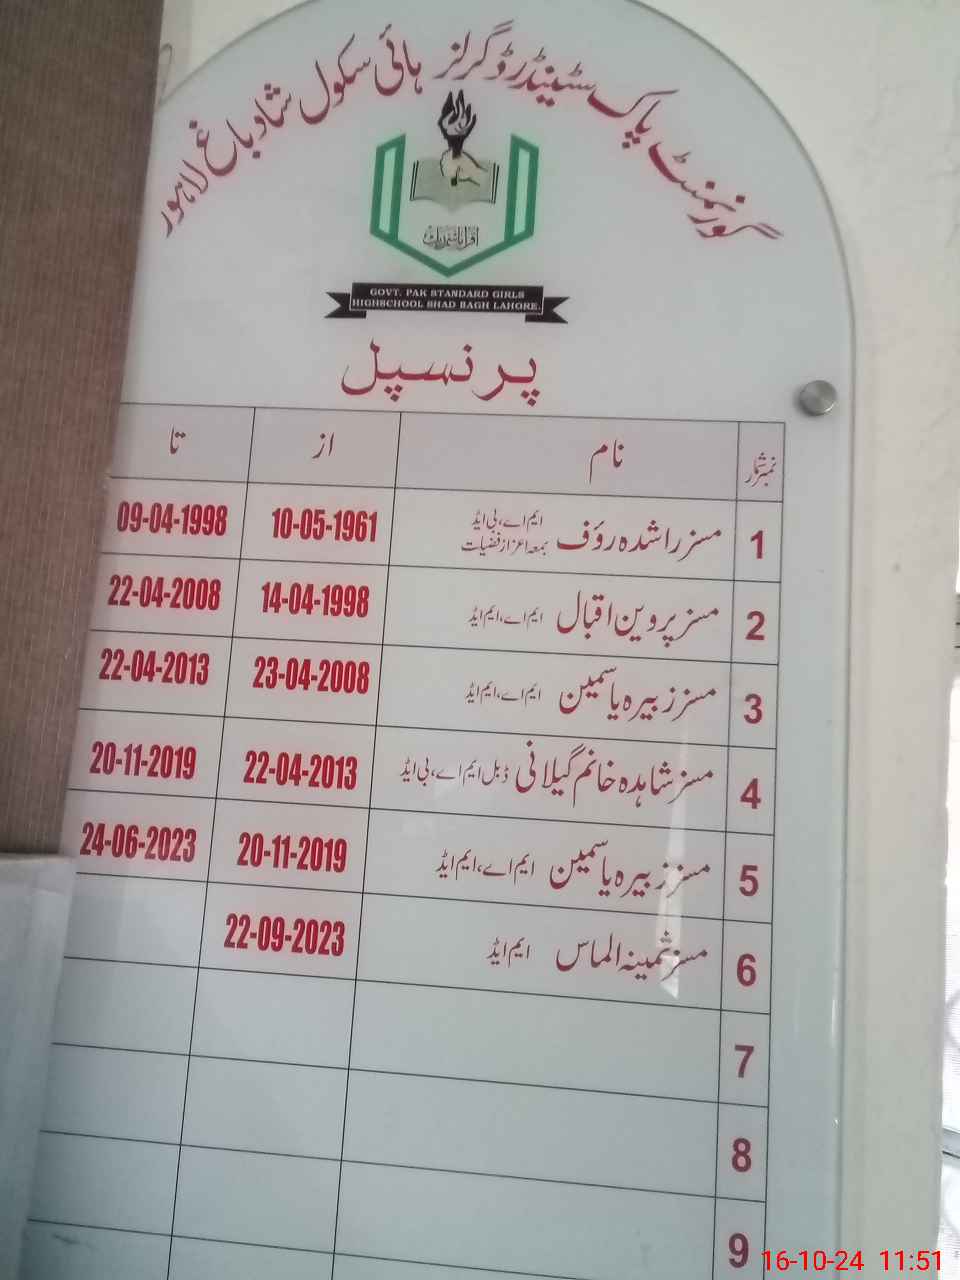 گورنمنٹ پاک سٹینڈرڈ گرلز ہائی سکول شاد باغ لاہور
اقرأ باسم ربك
GOVT. PAK STANDARD GIRLS
HIGHSCHOOL SHAD BAGH LAHORE.
پرنسپل
نمبر شمار نام از تا
1 مسز راشدہ رؤف ایم اے، بی ایڈ بمعہ اعزاز فضیلت 10-05-1961 09-04-1998
2 مسز پروین اقبال ایم اے، ایم ایڈ 14-04-1998 22-04-2008
3 مسز زبیرہ یاسمین ایم اے، ایم ایڈ 23-04-2008 22-04-2013
4 مسز شاہدہ خانم گیلانی ڈبل ایم اے، بی ایڈ 22-04-2013 20-11-2019
5 مسز زبیرہ یاسمین ایم اے، ایم ایڈ 20-11-2019 24-06-2023
6 مسز ثمینہ الماس ایم ایڈ 22-09-2023
7
8
9
16-10-24 11:51